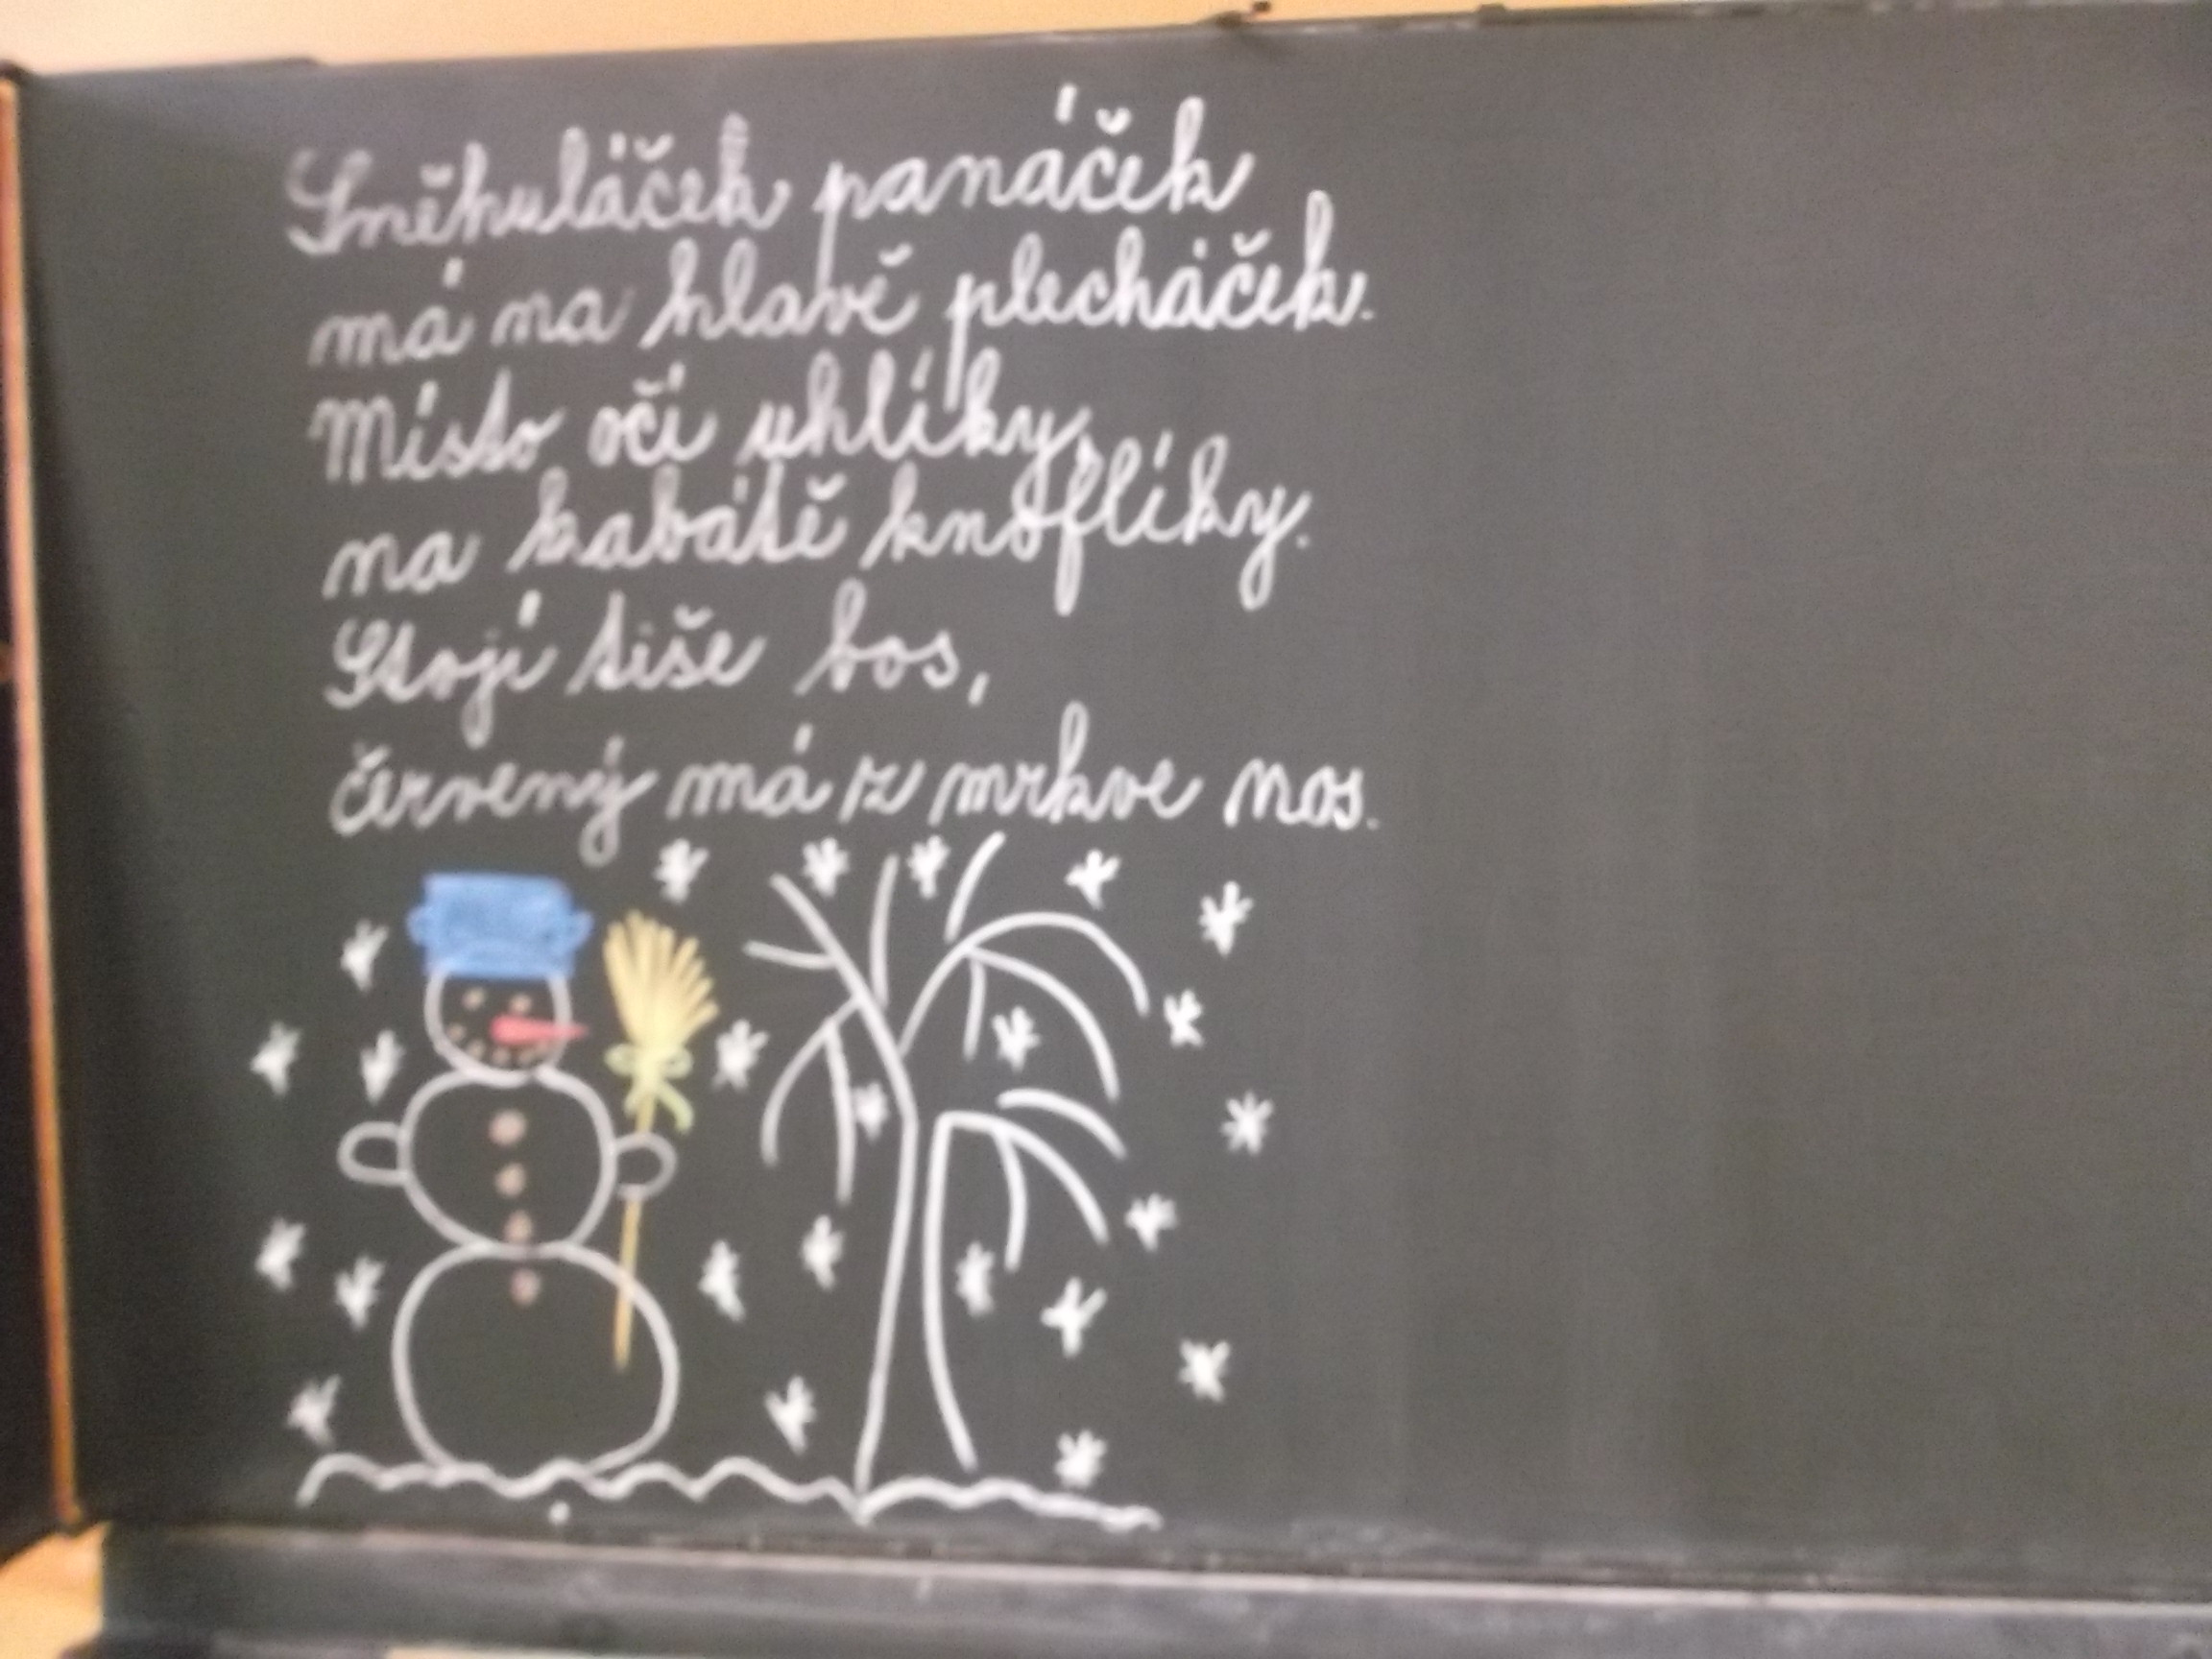 Sněhuláček panáček
má na hlavě plecháček.
Místo očí uhlíky,
na kabátě knoflíky.
Stojí tiše bos,
červený má z mrkve nos.